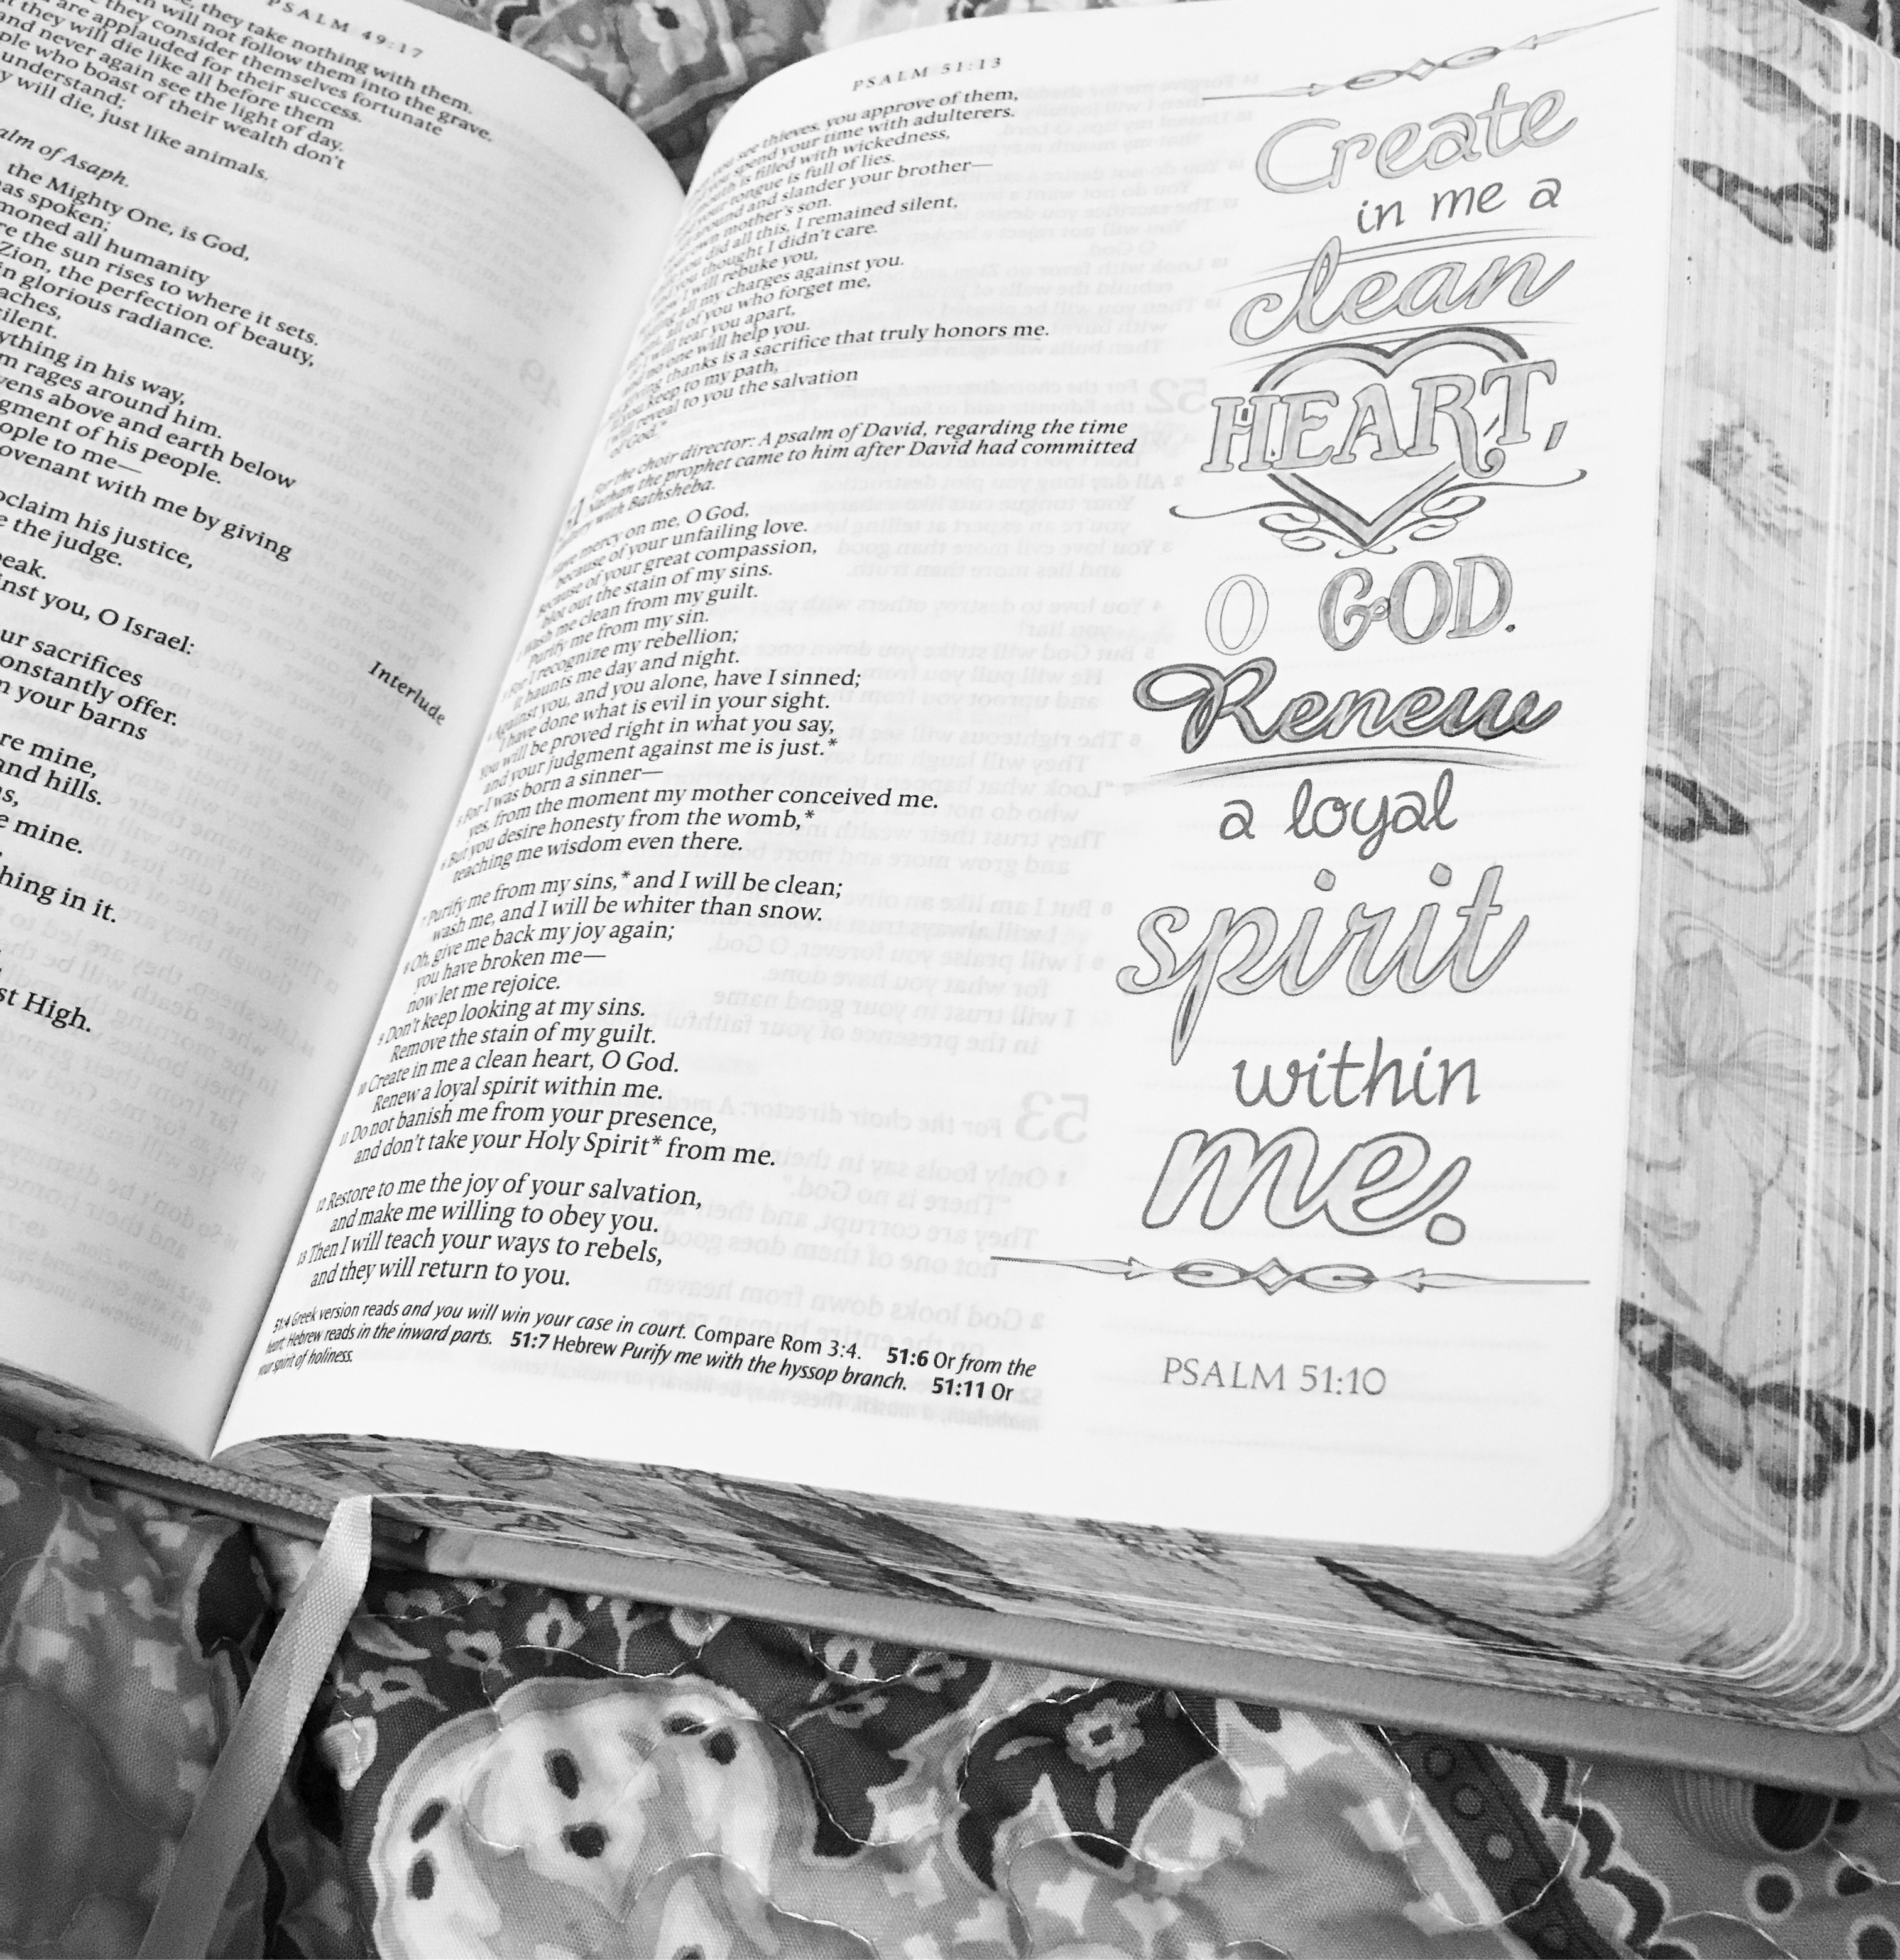 PSALM 49:17
they take nothing with them.
will not follow them into the grave.
they consider themselves fortunate
are applauded for their success.
they will die like all before them
and never again see the light of day.
who boast of their wealth don't
understand;
will die, just like animals.
of Asaph.
the Mighty One, is God,
has spoken;
all humanity
the sun rises to where it sets.
Zion, the perfection of beauty,
in glorious radiance.
in his way,
rages around him.
above and earth below
of his people.
to me—
with me by giving
his justice,
the judge.
you, O Israel:
sacrifices
constantly offer.
your barns
mine,
and hills.
mine.
in it.
High.
Interlude
PSALM 51:13
see thieves, you approve of them,
spend your time with adulterers.
is filled with wickedness,
your tongue is full of lies.
and slander your brother—
own mother's son.
did all this, I remained silent,
thought I didn't care.
I will rebuke you,
all my charges against you.
all of you who forget me,
I will tear you apart,
no one will help you.
thanks is a sacrifice that truly honors me.
keep to my path,
reveal to you the salvation
of God."
For the choir director: A psalm of David, regarding the time
Nathan the prophet came to him after David had committed
with Bathsheba.
Have mercy on me, O God,
because of your unfailing love.
Because of your great compassion,
blot out the stain of my sins.
Wash me clean from my guilt.
Purify me from my sin.
For I recognize my rebellion;
it haunts me day and night.
Against you, and you alone, have I sinned;
I have done what is evil in your sight.
You will be proved right in what you say,
and your judgment against me is just.*
5 For I was born a sinner—
yes, from the moment my mother conceived me.
6 But you desire honesty from the womb,*
teaching me wisdom even there.
7 Purify me from my sins,* and I will be clean;
wash me, and I will be whiter than snow.
8 Oh, give me back my joy again;
you have broken me—
now let me rejoice.
9 Don't keep looking at my sins.
Remove the stain of my guilt.
10 Create in me a clean heart, O God.
Renew a loyal spirit within me.
11 Do not banish me from your presence,
and don't take your Holy Spirit* from me.
12 Restore to me the joy of your salvation,
and make me willing to obey you.
13 Then I will teach your ways to rebels,
and they will return to you.
51:4 Greek version reads and you will win your case in court. Compare Rom 3:4. 51:6 Or from the
heart; Hebrew reads in the inward parts. 51:7 Hebrew Purify me with the hyssop branch. 51:11 Or
your spirit of holiness.
Create
in me a
clean
HEART,
O GOD.
Renew
a loyal
spirit
within
me.
PSALM 51:10